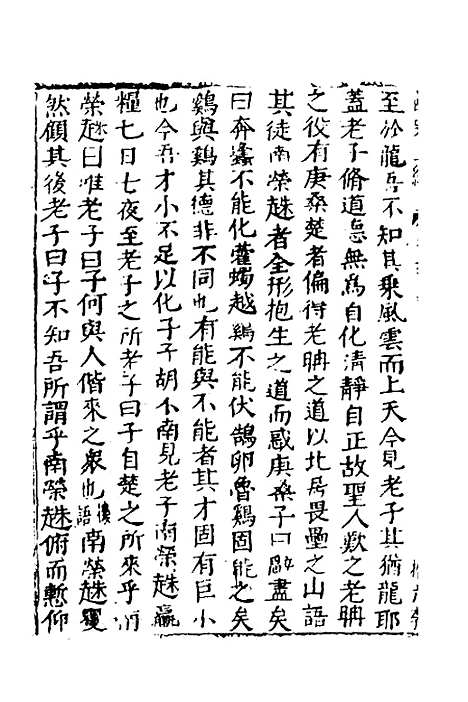 至於龍吾不知其乘風雲而上天今見老子其猶龍耶
蓋老子脩道㤀無爲自化清靜自正故聖人歎之老聃
之役有庚桑楚者偏得老聃之道以北居畏壘之山語
其徒南榮趎者全形抱生之道而惑庚桑子曰辭盡矣
曰奔蜂不能化藿蠋越鷄不能伏鵠卵魯鷄固能之矣
鷄與鷄其德非不同也有能與不能者其才固有巨小
也今吾才小不足以化子子胡不南見老子南榮趎贏
糧七日七夜至老子之所老子曰子自楚之所來乎南
榮趎曰唯老子曰子何與人偕來之衆也後語南榮趎矍
然顧其後老子曰子不知吾所謂乎南榮趎俯而慙仰